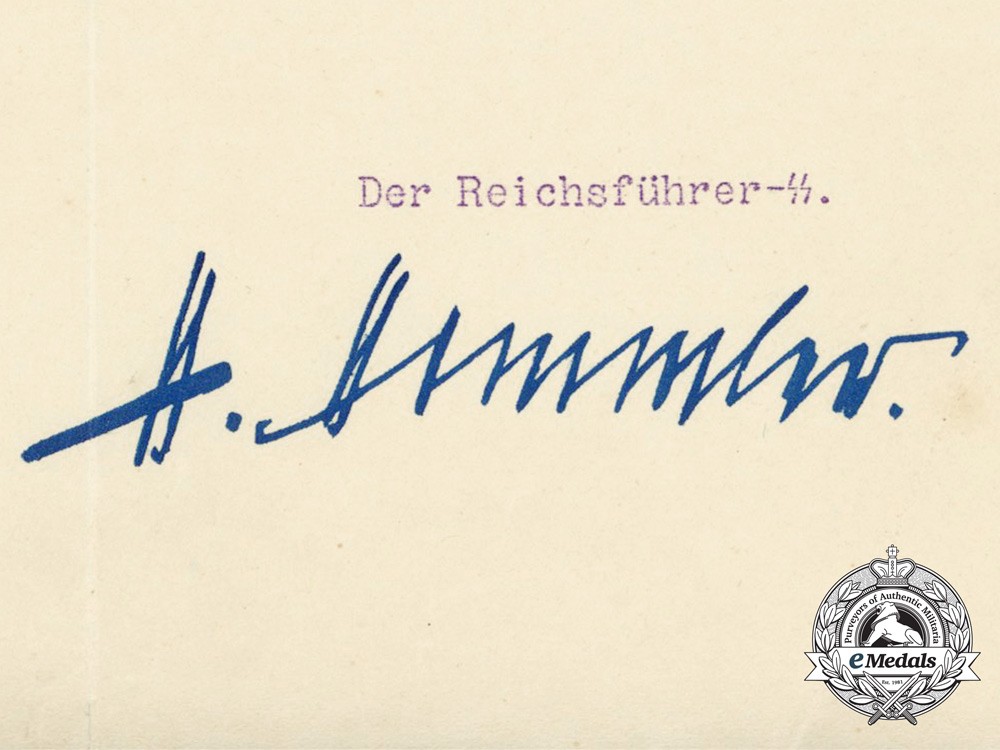 Der Reichsführer-ᛋᛋ.
H. Himmler.
Purveyors of Authentic Militaria
eMedals
Est. 1981